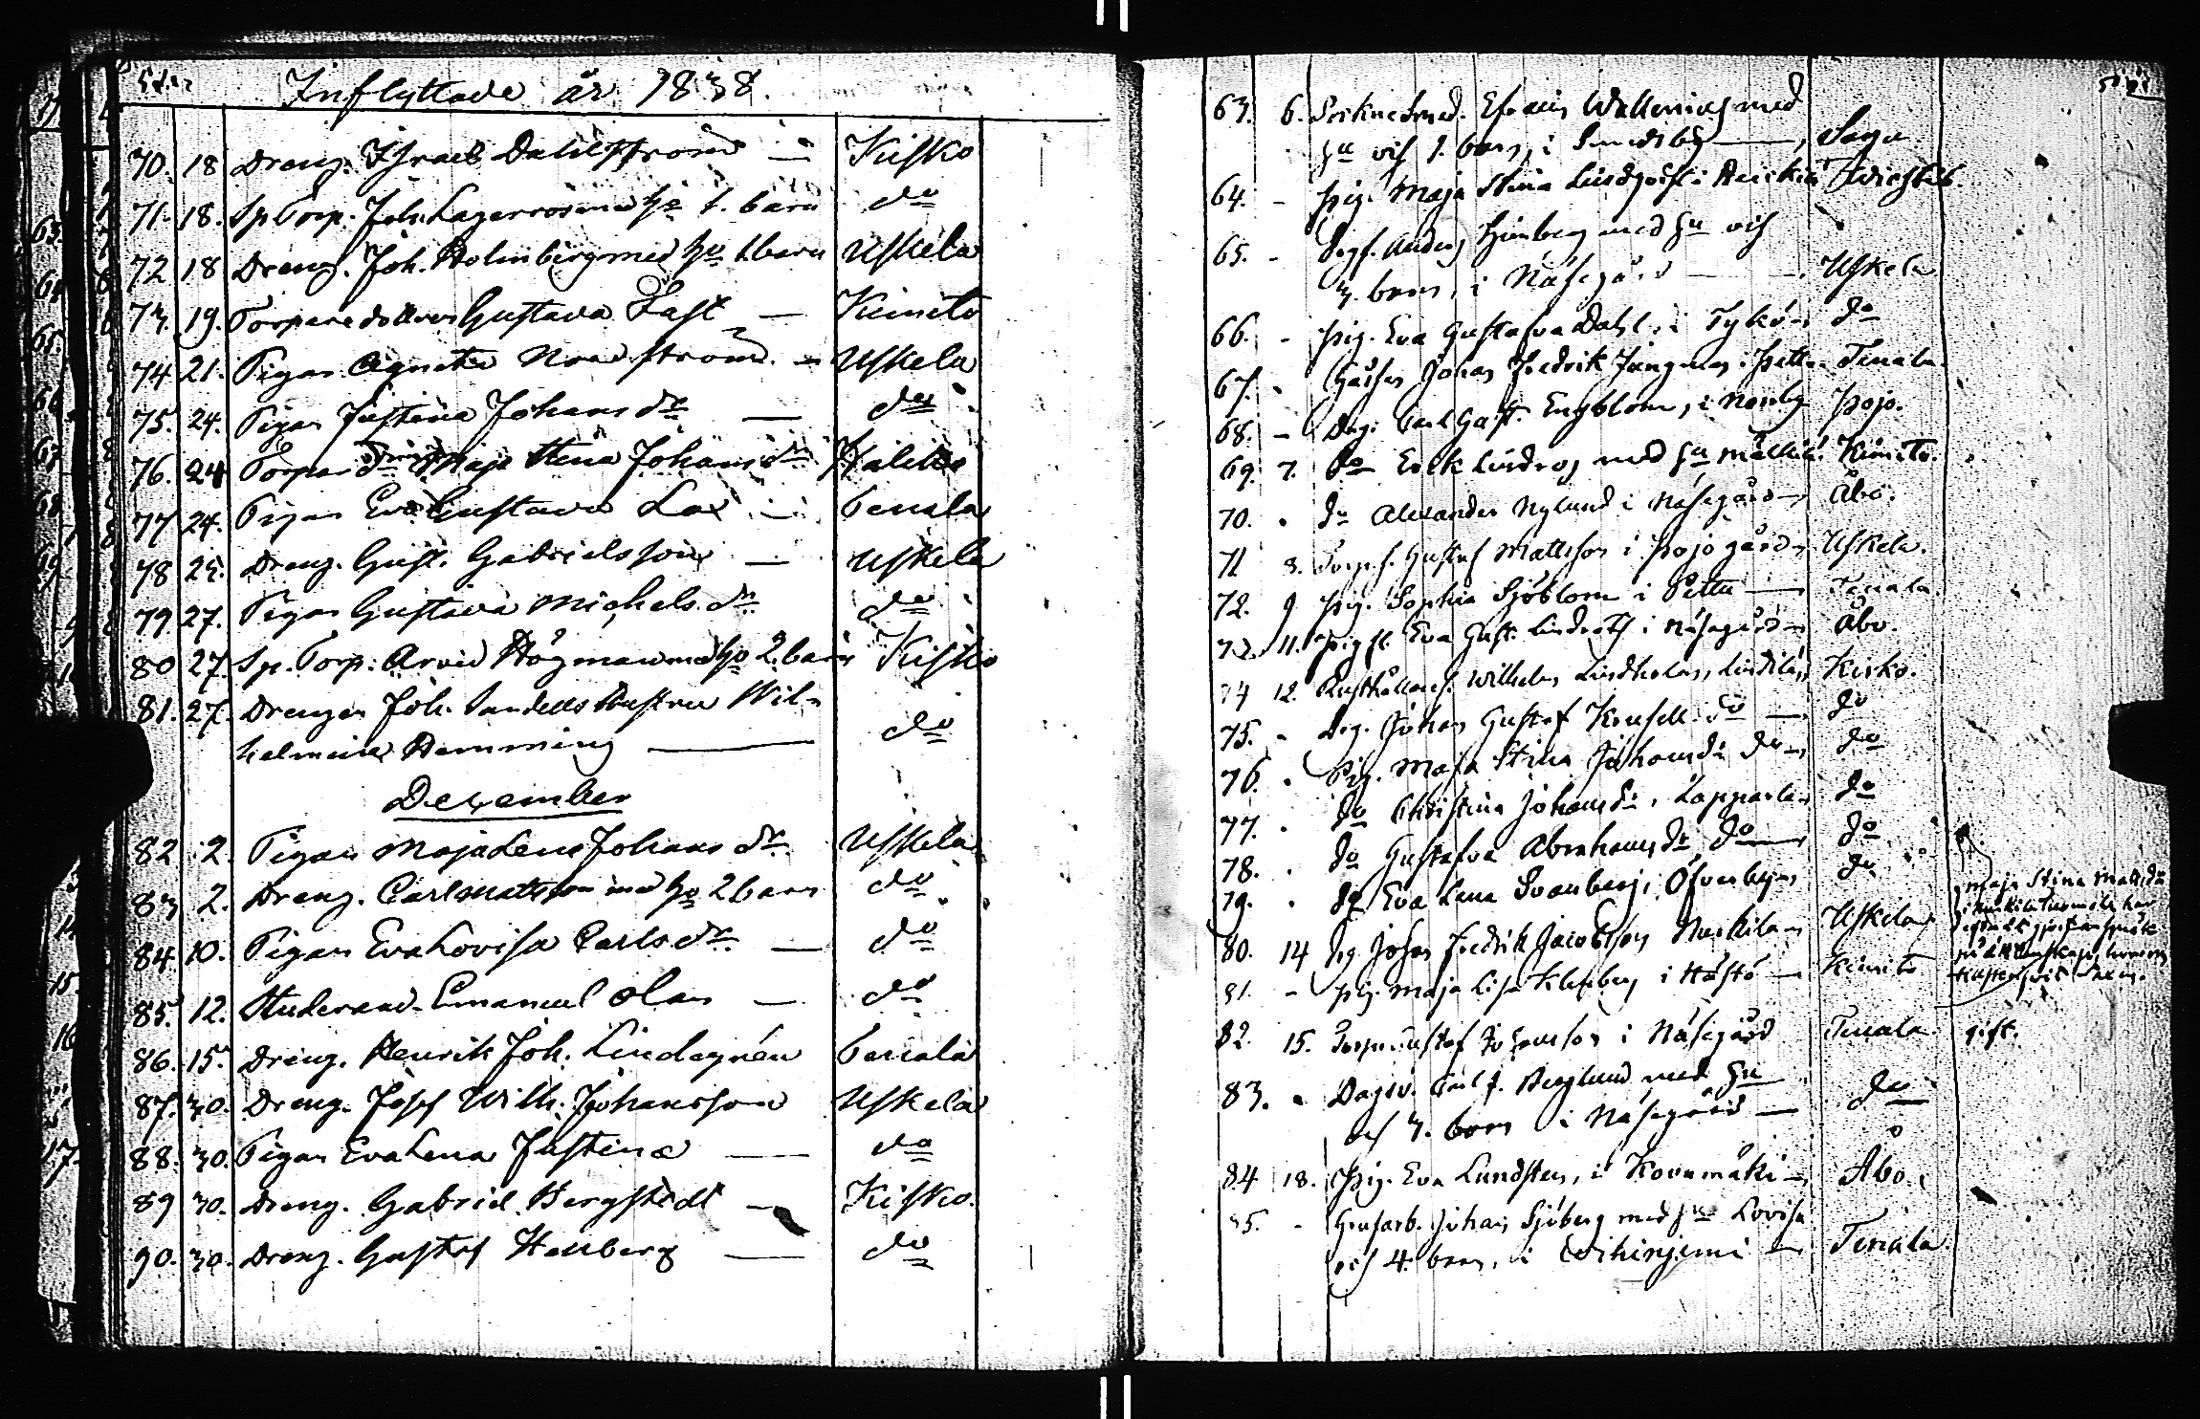 Inflyttade år 1838.
70. 18 Dreng. Israel Dahlström — Kisko
71. 18. Sp Torp. Joh. Lagerroos med ho 1. barn do
72 18 Dreng. Joh. Holmberg med ho 1 barn Uskela
73. 19. Torpare dottren Gustava Fast — Kimito
74 21. Pigan Agneta Nordström. — Uskela
75. 24. Pigan Justina Johans dr — do
76. 24 Torpar dr Maja Stina Johans dr Halikko
77 24. Pigan Eva Gustava Lax — Tenala
78 25. Dreng. Gust. Gabrielsson — Uskela
79 27. Pigan Gustava Michels dr do
80 27. Sp. Torp. Arvid Högman med ho 2. barn Kisko
81. 27. Drengen Joh. Sandells Hustru Wil-
helmina Hemming — do
December
82 2. Pigan Maja Lena Johans dr Uskela
83 2. Dreng. Carl Mattsson med ho 2 barn do
84. 10. Pigan Eva Lovisa Carls dr — do
85. 12. Studerand. Emanuel Olan — do
86. 15. Dreng. Henrik Joh. Lindegrén Tenala
87. 30. Dreng. Josef Wilh. Johansson Uskela
88. 30. Pigan Eva Lena Justina — do
89 30. Dreng. Gabriel Bergstedt — Kisko.
90. 30. Dreng. Gustaf Hellberg — do
63. 6. Sockne Smed. Efraim Wallenius med
hu och 1. barn, i Smedsby —, Sagu
64. - Pig. Maja Stina Lindqvist i
65. - Torpf. Anders Himberg med hu och
3. barn, i Näsegård —, Uskela
66. - Pig. Eva Gustafva Dahl, i Tykö — do
67. - Johan Fredrik Jungman i Pettu Tenala
68. - Drg. Carl Gust. Engblom, i Norrby Pojo.
69. 7. do Erik Lindroos med hu Kimito.
70. . do Alexander Nylund i Näsegård — Åbo.
71 8. Torp.f. Gustaf Mattsson i Pojo gård — Uskela.
72. 9 Pig. Sophia Sjöblom i Pettu — Tenala
73. 11. Pig. Eva Gust. Lindroth i Näsegård — Åbo.
74 12. Rusthållares. Wilhelm Lindholm, Kisko.
75. - Drg. Johan Gustaf Konsell do — do
76. . Pig. Maja Stina Johansdr do — do
77. . do Christina Johansdr, do
78. . do Gustafva Abrahamsdr do — do
79. . do Eva Lena Svanberg, i Öfverby — do
80. 14 Drg. Johan Fredrik Jacobsson — Uskela
Maja Stina Mattsdr
81. - Pig. Maja Lisa Klenberg i — Kimito
82. 15. Torp. Gustaf Johansson i Näsegård Tenala gift.
83. . Dagsv. Carl J. Berglund med hu
och 3. barn i Näsegård — do
84 18. Pig. Eva Lundsten, i — Åbo.
85. - Johan Sjöberg med hu Lovisa
och 4. barn, i — Tenala.